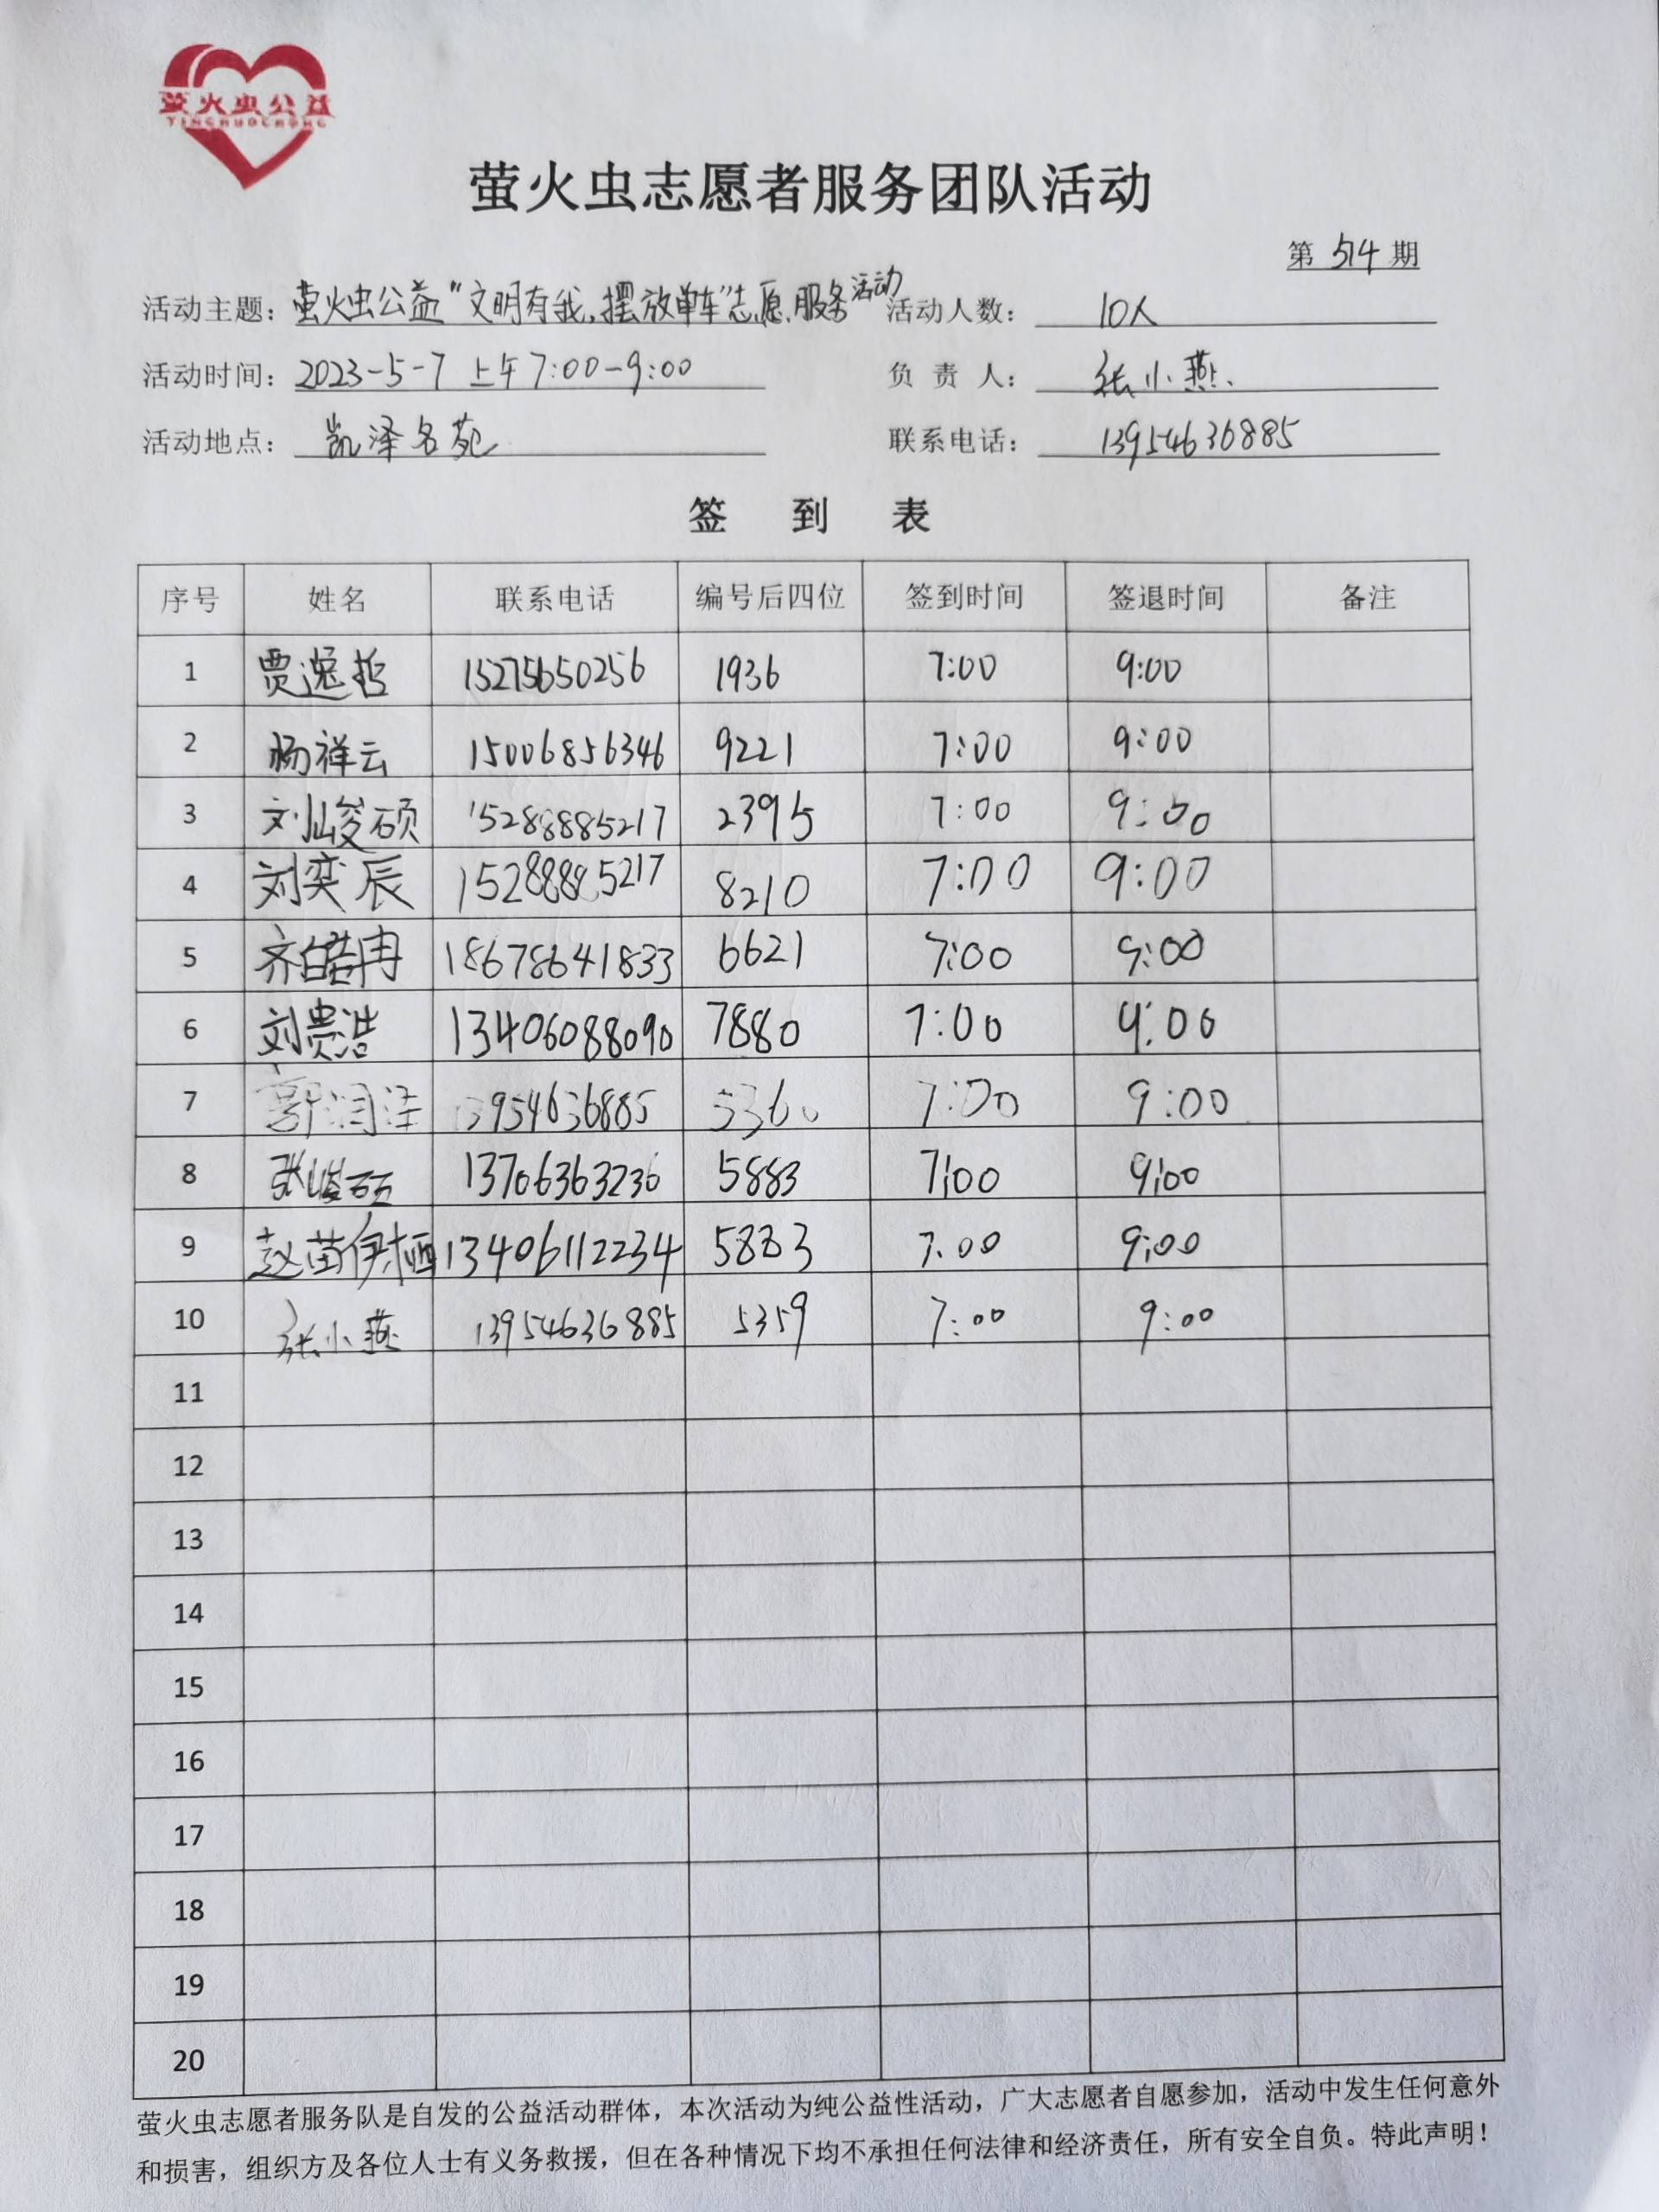 萤火虫公益
YINGHUOCHONG
萤火虫志愿者服务团队活动
第 514 期
活动主题：萤火虫公益"文明有我，摆放单车"志愿服务活动 活动人数：10人
活动时间：2023-5-7 上午7:00-9:00 负责人：张小燕
活动地点：凯泽名苑 联系电话：13954636885
签到表
序号 姓名 联系电话 编号后四位 签到时间 签退时间 备注
1 贾逸哲 15275650256 1936 7:00 9:00
2 杨祥云 15006856346 9221 7:00 9:00
3 刘峻硕 15288885217 2395 7:00 9:00
4 刘奕辰 15288885217 8210 7:00 9:00
5 齐皓冉 18678641833 6621 7:00 9:00
6 刘贵浩 13406088090 7880 7:00 9:00
7 13954636885 5360 7:00 9:00
8 张峻硕 13706363236 5883 7:00 9:00
9 赵苗伊栖 13406112234 5883 7:00 9:00
10 张小燕 13954636885 5359 7:00 9:00
11
12
13
14
15
16
17
18
19
20
萤火虫志愿者服务队是自发的公益活动群体，本次活动为纯公益性活动，广大志愿者自愿参加，活动中发生任何意外
和损害，组织方及各位人士有义务救援，但在各种情况下均不承担任何法律和经济责任，所有安全自负。特此声明！